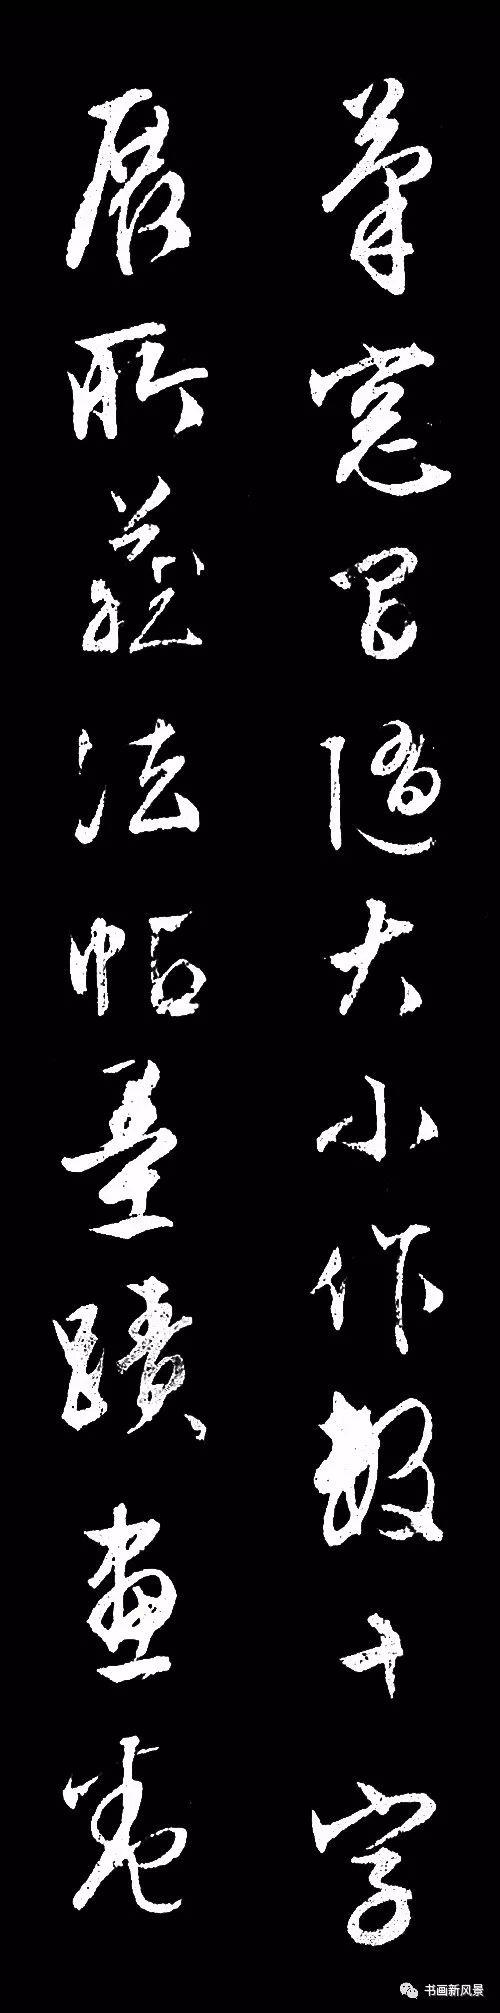 筆窓間随大小作數十字
展所藏法帖墨蹟畫卷
书画新风景